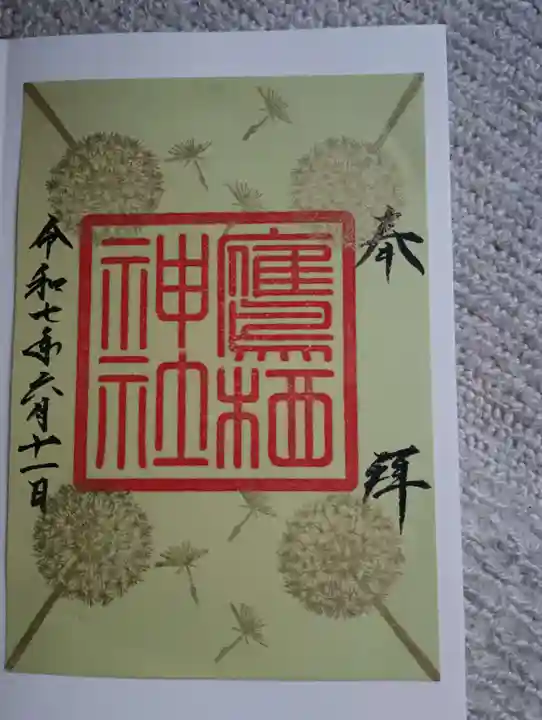 奉拝
鷹栖
神社
令和七年六月十一日